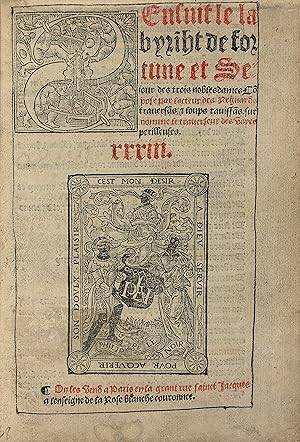 Ensuit le la
byriht de for
tune et Se
iour des trois nobles dames Cõ
pose par lacteur des Regnars
trauersãs, et loups rauissãs, sur
nomme le trauerseur des voyes
perilleuses.
xxxiii.
CEST MON DESIR
DIEU SERVIR
POVR ACQVERIR
SON DOVLX PLAISIR
PHILIPPE LE NOIR
¶ On les vend a Paris en la grant rue sainct Jacques
a lenseigne de la Rose blanche couronnee.